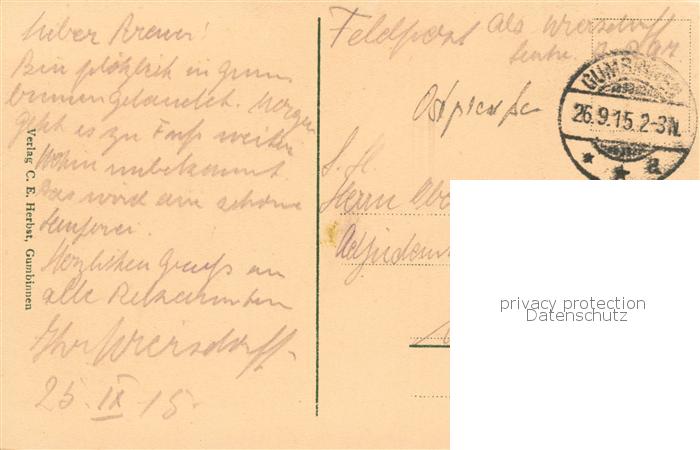 Lieber Brauer!
Bin plötzlich in Gum-
binnen gelandet. Morgen
geht es zu Fuß weiter
Wohin unbekannt
Das wird eine schöne
Herzlichen Gruß an
alle Bekannten
Ihr Wiersdorff.
25. IX 15.
Verlag C. E. Herbst, Gumbinnen
Feldpost Abs. Wiersdorff
Ostpreußen
GUMBINNEN
26.9.15. 2-3N.
* * a
S. H.
Herrn
privacy protection
Datenschutz